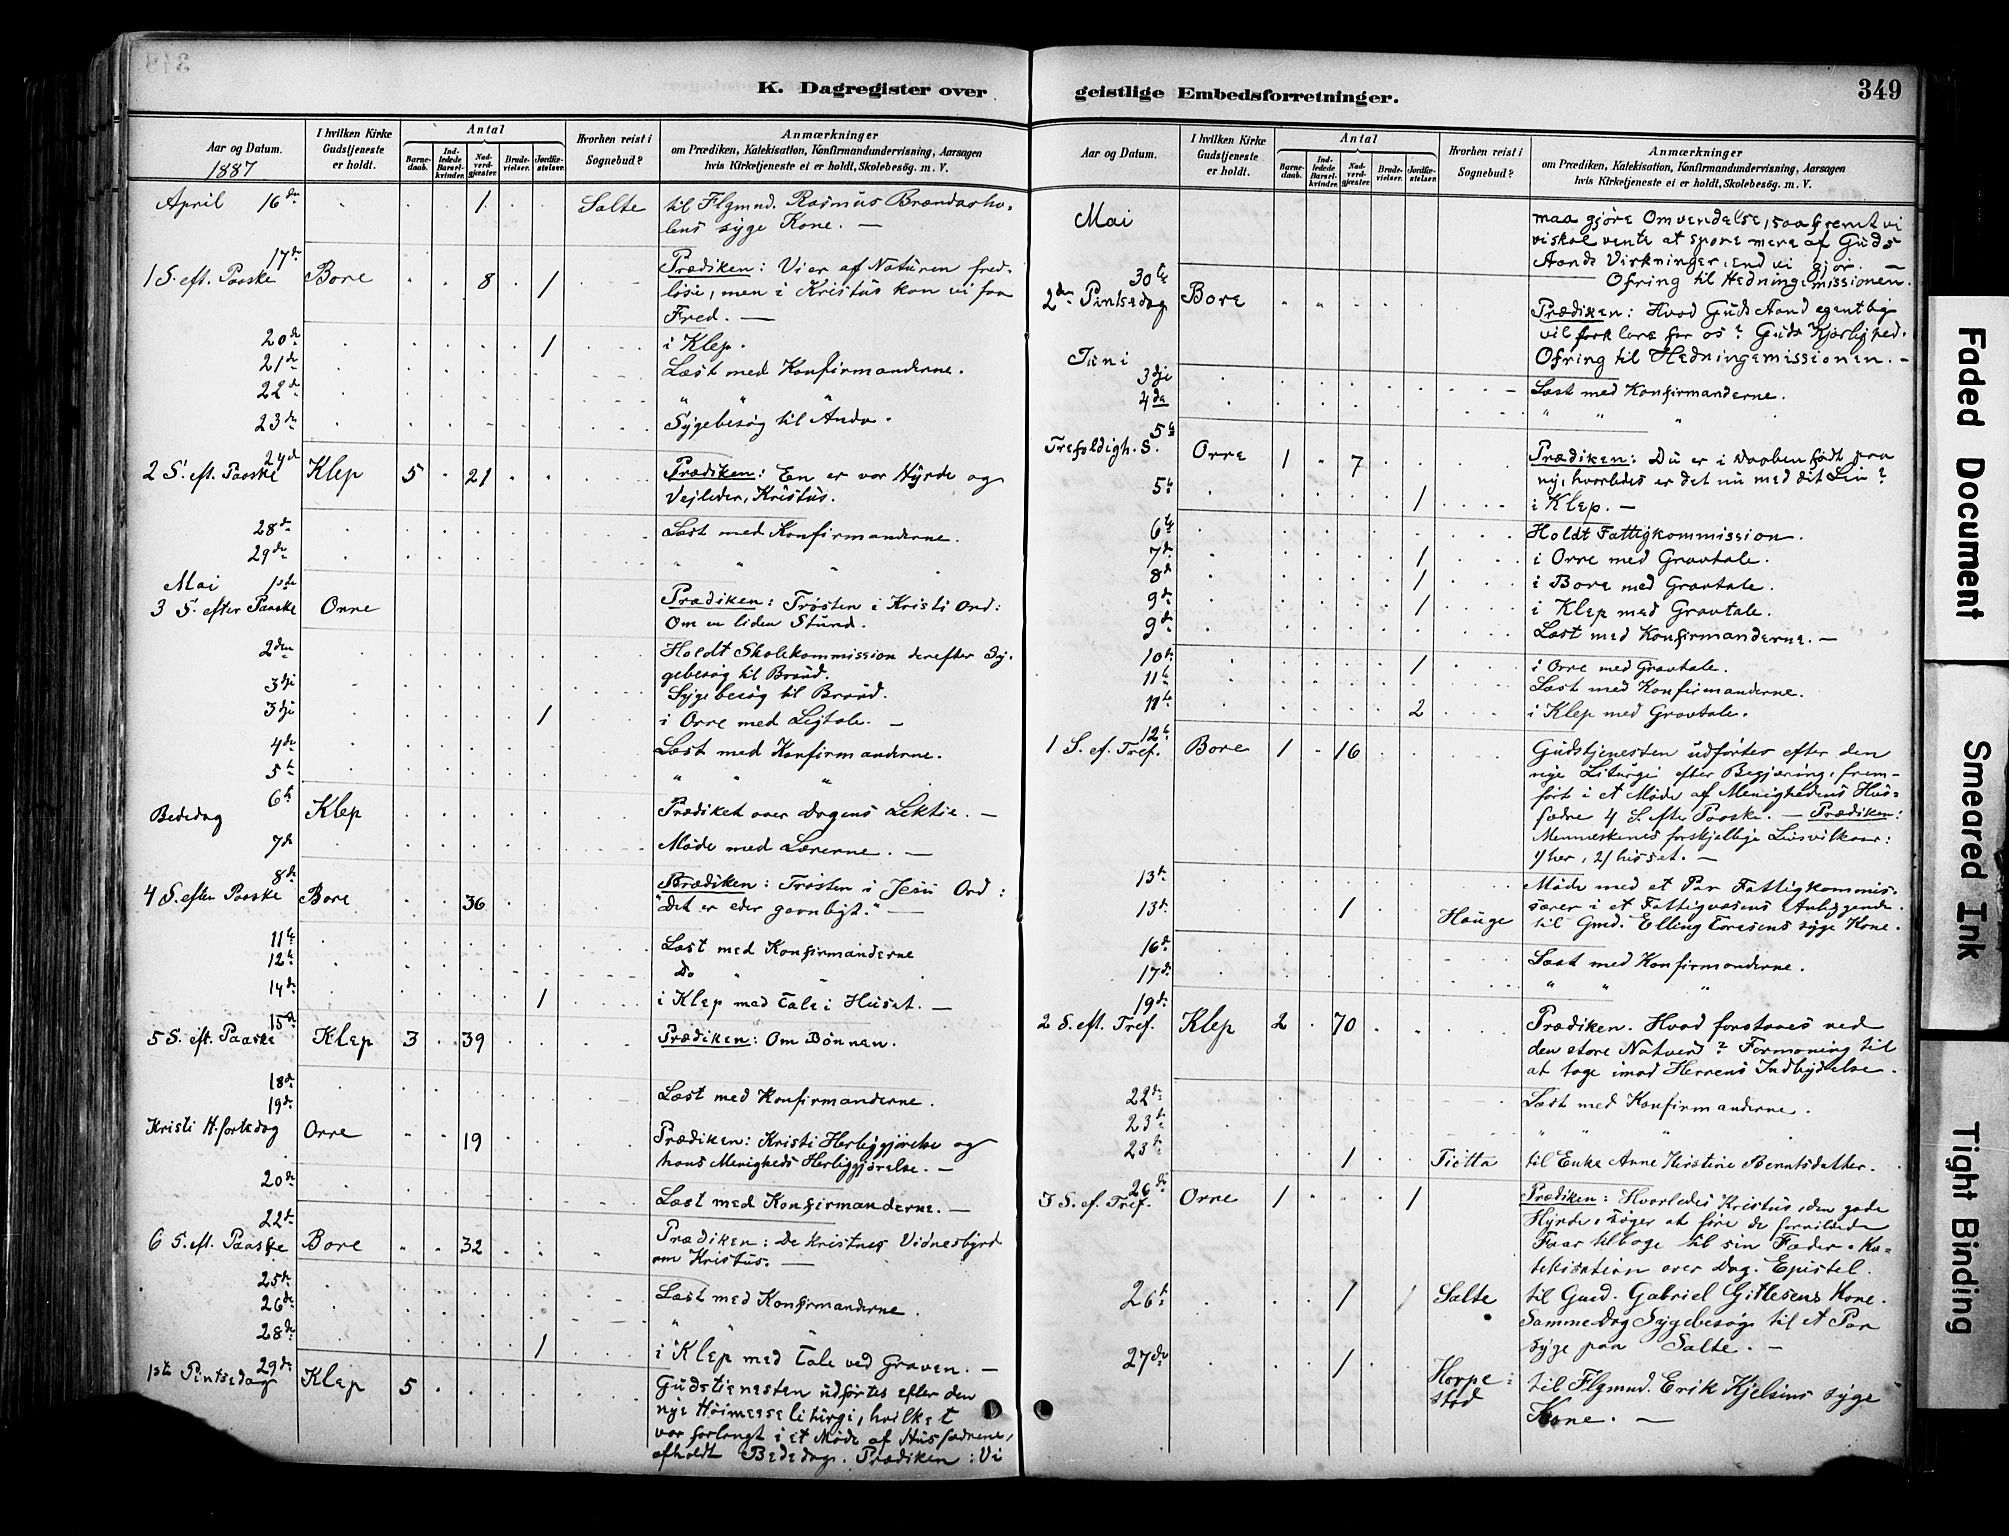 K. Dagregister over geistlige Embedsforretninger. 349
Aar og Datum. 1887
I hvilken Kirke Gudstjeneste er holdt.
Antal
Barnedaab.
Indledede Barselkvinder.
Nadverdgjester.
Brudevielser.
Jordfæstelser.
Hvorhen reist i Sognebud?
Anmærkninger
om Prædiken, Katekisation, Konfirmandundervisning, Aarsagen
hvis Kirketjeneste ei er holdt, Skolebesøg. m. V.
April 16de 1 Salte til Flgmnd. Rasmus Brændasho-
lens syge Kone. —
17de
1 S. eft. Paaske Bore 8 1 Prædiken: Vi er af Naturen fred-
løse, men i Kristus kan vi faa
Fred. —
20de 1 i Klep.
21de Læst med Konfirmanderne.
22de " " "
23de Sygebesøg til Anda.
24de
2 S. eft. Paaske Klep 5 21 Prædiken: En er vor Hyrde og
Vejleder, Kristus.
28de Læst med Konfirmanderne.
29de " " "
Mai 1ste
3 S. efter Paaske Orre Prædiken: Trøsten i Kristi Ord:
Om en liden Stund.
2den Holdt Skolekommission derefter Sy-
gebesøg til Braud.
3dje Sygebesøg til Braud.
3dje 1 i Orre med Ligtale. —
4de Læst med Konfirmanderne.
5te " " "
6te
Bededag Klep Prædiket over Dagens Lektie. —
7de Møde med Lærerne. —
8de
4 S. efter Paaske Bore 36 Prædiken: Trøsten i Jesu Ord:
"Det er eder gavnligt." —
11te Læst med Konfirmanderne
12te Do " "
14de 1 i Klep med Tale i Huset. —
15de
5 S. eft. Paaske Klep 3 39 Prædiken: Om Bønnen.
18de Læst med Konfirmanderne.
19de
Kristi H.fartsdag Orre 19 Prædiken: Kristi Herliggjørelse og
hans Menigheds Herliggjørelse. —
20de Læst med Konfirmanderne. —
22de
6 S. eft. Paaske Bore 32 Prædiken: De Kristnes Vidnesbyrd
om Kristus. —
25de Læst med Konfirmanderne.
26de " " "
28de 1 i Klep med Tale ved Graven. —
29de
1ste Pintsedag Klep 5 Gudstjenesten udførtes efter den
nye Høimesseliturgi, hvilket
var forlangt i et Møde af Husfædrene,
afholdt Bededag. Prædiken: Vi
Aar og Datum.
I hvilken Kirke Gudstjeneste er holdt.
Antal
Barnedaab.
Indledede Barselkvinder.
Nadverdgjester.
Brudevielser.
Jordfæstelser.
Hvorhen reist i Sognebud?
Anmærkninger
om Prædiken, Katekisation, Konfirmandundervisning, Aarsagen
hvis Kirketjeneste ei er holdt, Skolebesøg. m. V.
Mai maa gjøre Omvendelse, saafremt vi
vi skal vente at spore mere af Guds
Aands Virkninger, end vi gjør. —
Ofring til Hedningemissionen.
30te
2den Pintsedag Bore Prædiken: Hvad Guds Aand egentlig
vil forklare for os? Guds Kjærlighed.
Ofring til Hedningemissionen. —
Juni
3dje Læst med Konfirmanderne.
4de " " "
5te
Trefoldigh. S. Orre 1 7 Prædiken: Du er i Daaben født paa
ny, hvorledes er det nu med dit Liv?
5te 1 i Klep. —
6te Holdt Fattigkommission.
7de 1 i Orre med Gravtale.
8de 1 i Bore med Gravtale.
9de 1 i Klep med Gravtale.
9de Læst med Konfirmanderne. —
10de 1 i Orre med Gravtale.
11te Læst med Konfirmanderne.
11te 2 i Klep med Gravtale.
12te
1 S. ef. Tref. Bore 1 16 Gudstjenesten udførtes efter den
nye Liturgi efter Begjæring, frem-
ført i et Møde af Menighedens Hus-
fædre 4 S. efter Paaske. — Prædiken:
Menneskenes forskjellige Livsvilkaar:
1/ her, 2/ hisset. —
13de Møde med et Par Fattigkommis-
særer i et Fattigvæsens Anliggende.
13de 1 Hauge til Gmd. Elling Toresens syge Kone.
16de Læst med Konfirmanderne.
17de " " "
19de
2 S. eft. Tref. Klep 2 70 Prædiken. Hvad forstaaes ved
den store Natverd? Formaning til
at tage imod Herrens Indbydelse.
22de Læst med Konfirmanderne.
23de " " "
23de 1 Tjøtta til Enke Anne Kirstine Berntsdatter.
26de
3 S. ef. Tref. Orre 1 1 Prædiken: Hvorledes Kristus, den gode
Hyrde, søger at føre de forvildede
Faar tilbage til sin Fader. Ka-
tekisation over Dag. Epistel.
26de 1 Salte til Gmd. Gabriel Gitlesens Kone.
Samme Dag Sygebesøg til et Par
syge paa Salte. —
27de 1 Horpe-
stad til Flgmnd. Erik Kjelsens syge
Kone. —
Faded Document
Smeared Ink
Tight Binding